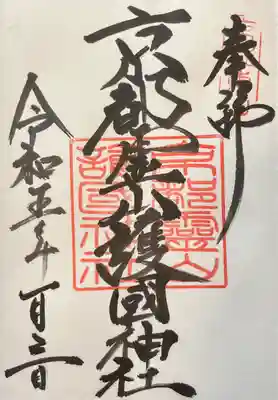 奉拝
京都霊山護國神社
令和五年一月三日